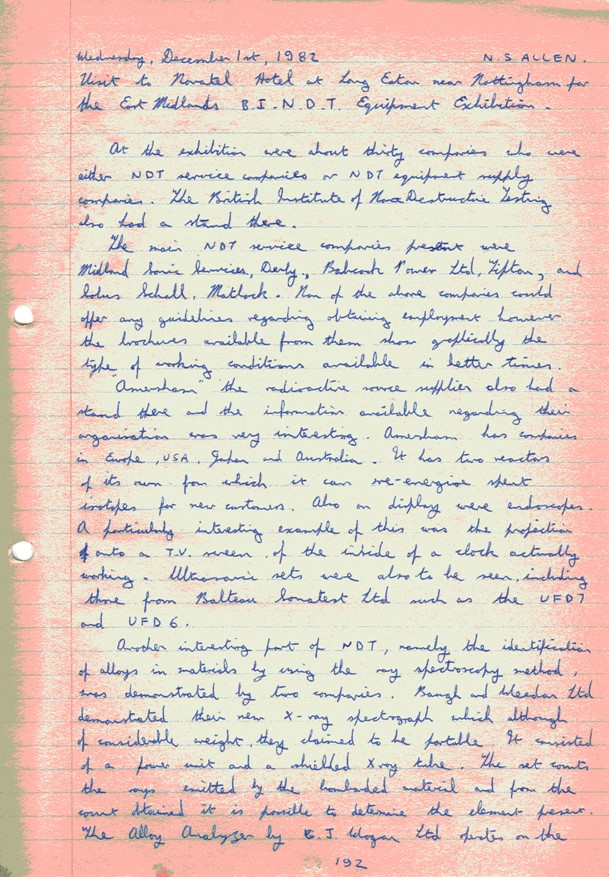 Wednesday, December 1st, 1982 N.S ALLEN.
Visit to Novatel Hotel at Long Eaton near Nottingham for
the East Midlands B.I.N.D.T. Equipment Exhibition.
At the exhibition were about thirty companies who were
either NDT service companies or NDT equipment supply
companies. The British Institute of Non Destructive Testing
also had a stand there.
The main NDT service companies present were
Midland Sonic Services, Derby, Babcock Power Ltd, Tipton, and
Solus Schall, Matlock. Non of the above companies could
offer any guidelines regarding obtaining employment however
the brochures available from them show graphically the
type of working conditions available in better times.
"Amersham" the radioactive source supplier also had a
stand there and the information available regarding their
organisation was very interesting. Amersham has companies
in Europe, USA, Japan and Australia. It has two reactors
of its own from which it can re-energise spent
isotopes for new customers. Also on display were endoscopes.
A particularly interesting example of this was the projection
onto a T.V. screen of the inside of a clock actually
working. Ultrasonic sets were also to be seen, including
those from Balteau Sonatest Ltd such as the UFD7
and UFD 6.
Another interesting part of NDT, namely the identification
of alloys in materials by using the ray spectroscopy method,
was demonstrated by two companies. Baugh and Weedon Ltd
demonstrated their new X-ray spectrograph which although
of considerable weight, they claimed to be portable. It consisted
of a power unit and a shielded X ray tube. The set counts
the rays emitted by the bombarded material and from the
count obtained it is possible to determine the element present.
The Alloy Analyzer by E.J. Wogan Ltd operates on the
192